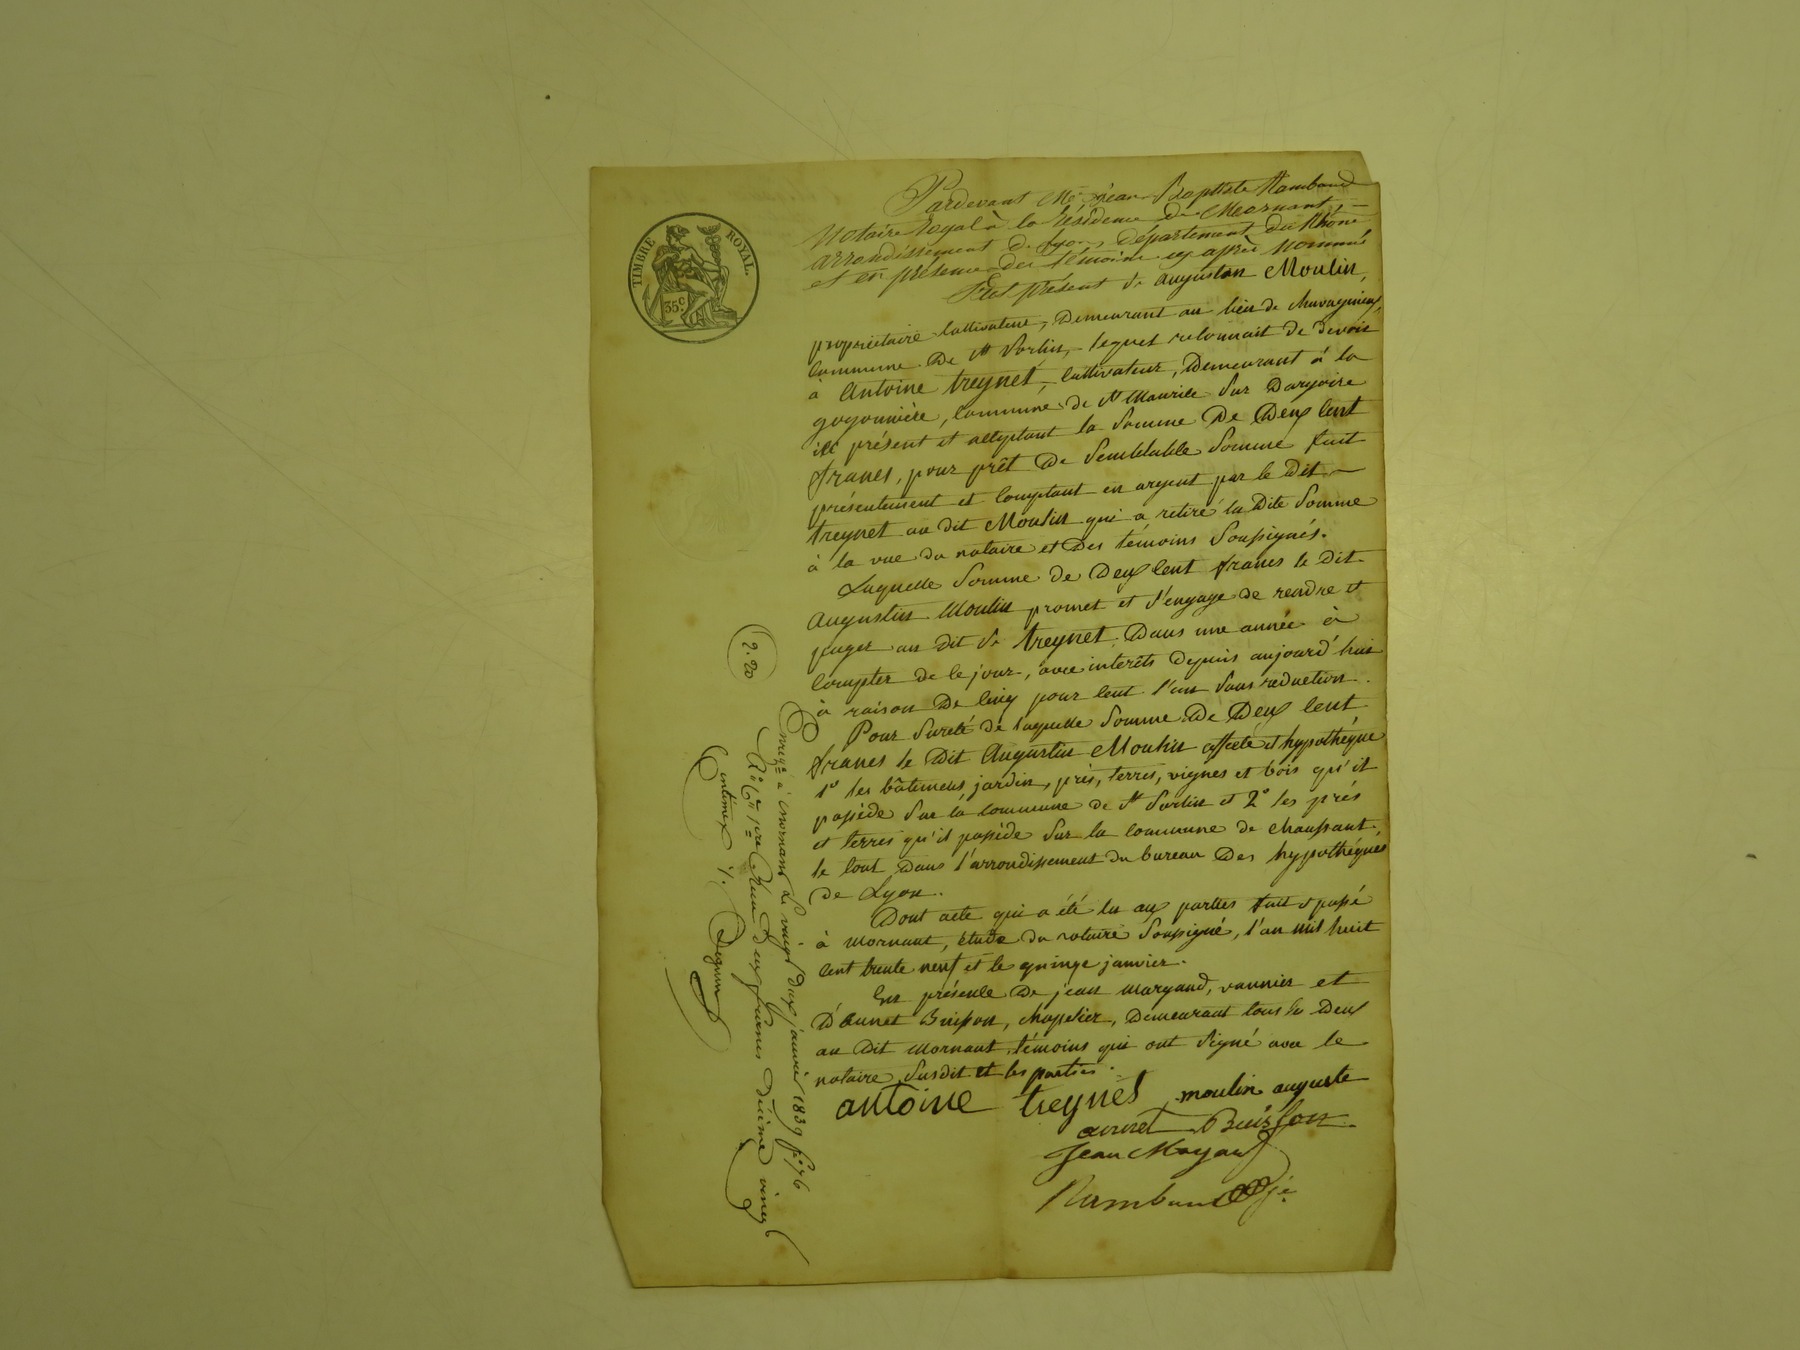 TIMBRE ROYAL.
35c.
Pardevant Me jean Baptiste Rambaud
Notaire Royal à la Résidence de Mornant
arrondissement de Lyon, département du Rhône
et en présence des témoins cy après nommés
fut présent Sr augustin Moulin,
propriétaire Cultivateur, Demeurant au lieu de
Commune De St Sorlin, lequel reconnait de devoir
à Antoine treynet, Cultivateur, Demeurant à la
gogonnière, Commune de St Maurice Sur Dargoire
ici présent et acceptant la Somme De Deux Cent
francs, pour prêt De Semblable Somme fait
présentement et Comptant en argent par le Dit
treynet au dit Moulin qui a retiré la Dite Somme
à la vue du notaire et Des témoins Soussignés.
Laquelle Somme de Deux Cent francs le Dit
Augustin Moulin promet et s'engage de rendre et
payer au dit Sr treynet Dans une année à
Compter de Ce jour, avec intérêts Depuis aujourd'hui
à raison De Cinq pour Cent l'an Sans réduction.
Pour Sureté de laquelle Somme De Deux Cent
francs le Dit Augustin Moulin affecte et hypothéque
1o les bâtimens, jardin, près, terres, vignes et bois qu'il
possède Sur la Commune de St Sorlin et 2o les prés
et terres qu'il possède Sur la Commune de Chaussant,
le tout Dans l'arrondissement du bureau Des hypothéques
de Lyon.
Dont acte qui a été lu aux parties fait et passé
à Mornant, étude du notaire Soussigné, l'an mil huit
Cent trente neuf et le quinze janvier.
En présence De jean margand, vannier et
D'Annet Buisson, Chapelier, Demeurant tous les Deux
au Dit Mornant, témoins qui ont Signé avec le
notaire Susdit et les parties.
antoine treynet moulin auguste
annet Buisson
Jean
Rambaud
2.20
Enregé à Mornant le vingt deux janvier 1839 fo 76
Ro Reçu Deux francs Décime vingt
Centimes